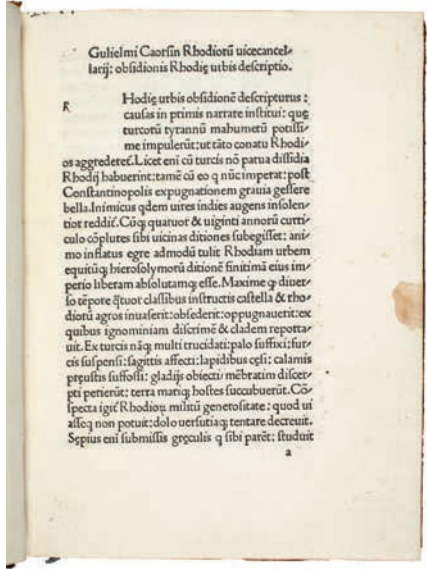 Gulielmi Caorsin Rhodiorũ uicecancel-
larij: obsidionis Rhodię urbis descriptio.
R
Hodię urbis obsidionẽ descripturus:
causas in primis narrare institui: quę
turcorũ tyrannũ mahumetũ potissi-
me impulerũt: ut tãto conatu Rhodi-
os aggrederet̃. Licet eni cũ turcis nõ parua dissidia
Rhodij habuerint: tamẽ cũ eo q nũc imperat: post
Constantinopolis expugnationem grauia gessere
bella. Inimicus qdem uires indies augens insolen-
tior reddit̃. Cũq; quatuor & uiginti annorũ curri-
culo cõplutes sibi uicinas ditiones subegisset: ani-
mo inflatus egre admodũ tulit Rhodiam urbem
equitũq; hierosolymorũ ditionẽ finitimã eius im-
perio liberam absolutamq; esse. Maxime ꝙ diuer-
so tẽpore q̃tuor classibus instructis castella & rho-
diotũ agros inuaserit: obsederit: oppugnauerit: ex
quibus ignominiam discrimẽ & cladem reporta-
uit. Ex turcis nãq; multi trucidati: palo suffixi: fur-
cis suspensi: sagittis affecti: lapidibus cęsi: calamis
pręustis suffossi: gladijs obiecti: mẽbratim discer-
pti perierũt: terra mariq; hostes succubuerũt. Cõ-
specta igit̃ Rhodioꝝ militũ generositate: quod ui
asseq non potuit: dolo uersutiaq; tentare decreuit.
Sępius eni submissis gręculis q sibi parẽt: studuit
a